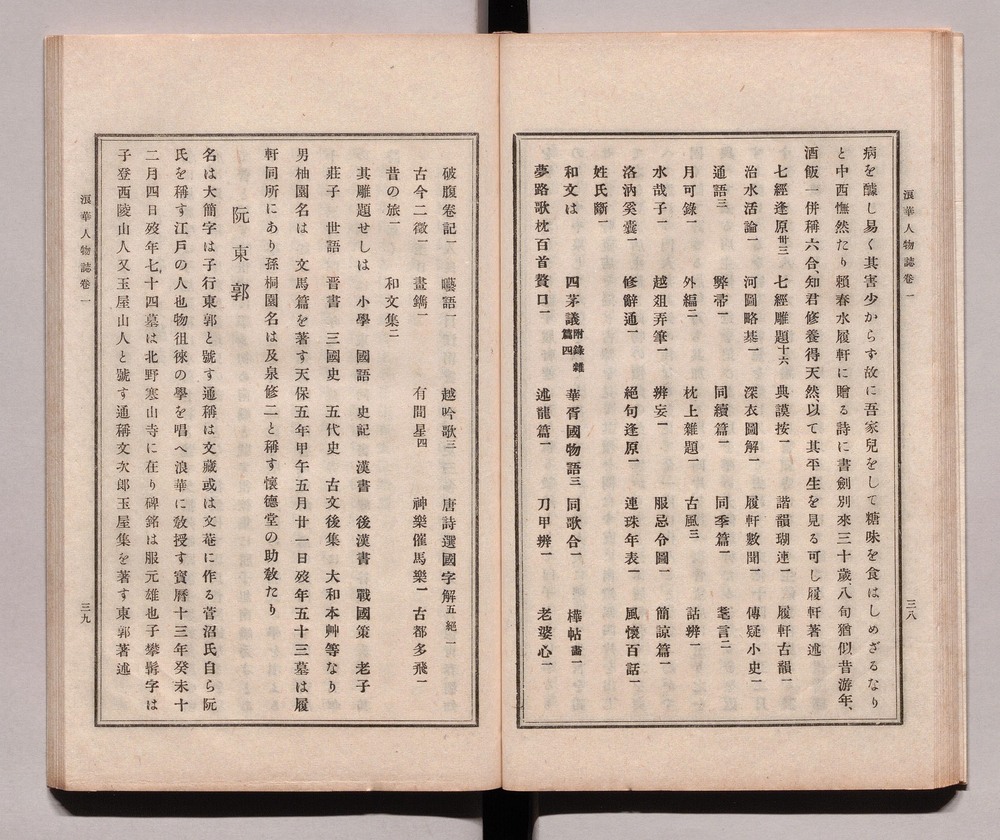 浪華人物誌卷一
三八
病を釀し易く其害少からす故に吾家兒をして糖味を食はしめざるなり
と中西憮然たり賴春水履軒に贈る詩に書劍別來三十歲、八旬猶似昔游年、
酒飯一併稱六合、知君修養得天然、以て其平生を見る可し履軒著述
七經逢原卅三　七經雕題十六　典謨按一　諧韻瑚連一　履軒古韻一
治水活論一　河圖略基一　深衣圖解一　履軒數聞一　傳疑小史一
通語三　弊帚一　同續篇一　同季篇一　耄言二
月可錄一　外編二　枕上雜題一　古風三　話辨一
水哉子一　越爼弄筆一　辨妄一　服忌令圖一　簡諒篇一
洛汭奚囊一　修辭通一　絕句逢原一　連珠年表一　風懷百話一
姓氏斷一
和文は　四茅議附錄雜篇四　華胥國物語三　同歌合一　樺帖畵一
夢路歌枕百首贅口一　述龍篇一　刀甲辨一　老婆心一
破腹卷記一　囈語一　越吟歌三　唐詩選國字解五絕一
古今二徵一　畫鐫一　有間星四　神樂催馬樂一　古都多飛一
昔の旅一　和文集二
其雕題せしは　小學　國語　史記　漢書　後漢書　戰國策　老子
莊子　世語　晋書　三國史　五代史　古文後集　大和本艸等なり
男柚園名は　文馬篇を著す天保五年甲午五月廿一日歿年五十三墓は履
軒同所にあり孫桐園名は及泉修二と稱す懷德堂の助敎たり
阮東郭
名は大簡字は子行東郭と號す通稱は文藏或は文菴に作る菅沼氏自ら阮
氏を稱す江戸の人也物徂徠の學を唱へ浪華に敎授す寶曆十三年癸未十
二月四日歿年七十四墓は北野寒山寺に在り碑銘は服元雄也子攀髯字は
子登西陵山人又玉屋山人と號す通稱文次郎玉屋集を著す東郭著述
浪華人物誌卷一
三九